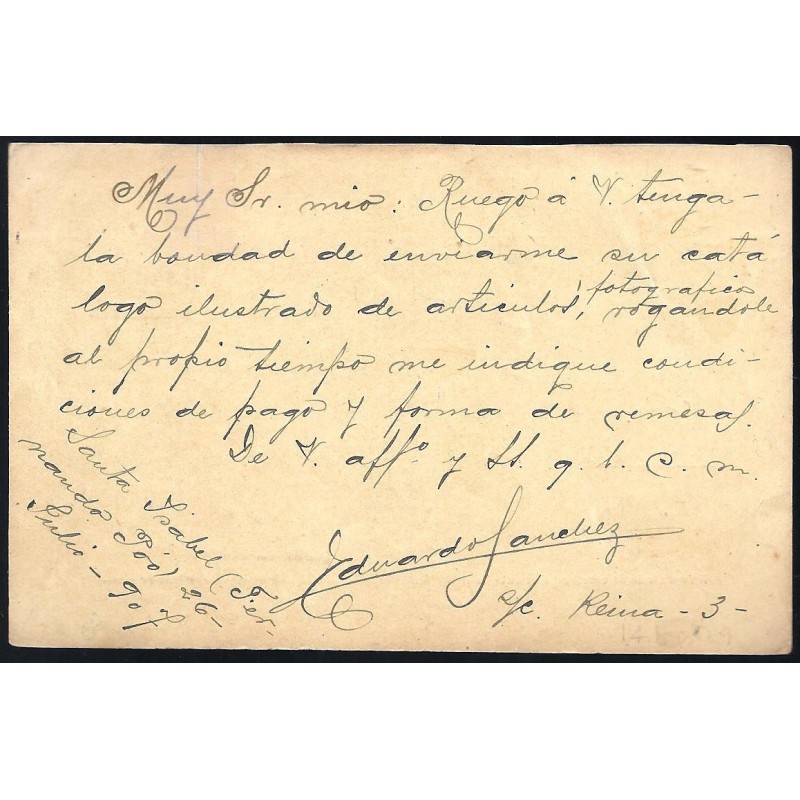 Muy Sr. mio: Ruego á V. tenga-
la bondad de enviarme su catá
logo ilustrado de articulos fotograficos, rogandole
al propio tiempo me indique condi-
ciones de pago y forma de remesas.
De V. affº. y SS. q. b. s. m.
Eduardo Sanchez
s/c. Reina - 3 -
Santa Isabel (Fer-
nando Póo) 26-
Julio - 907